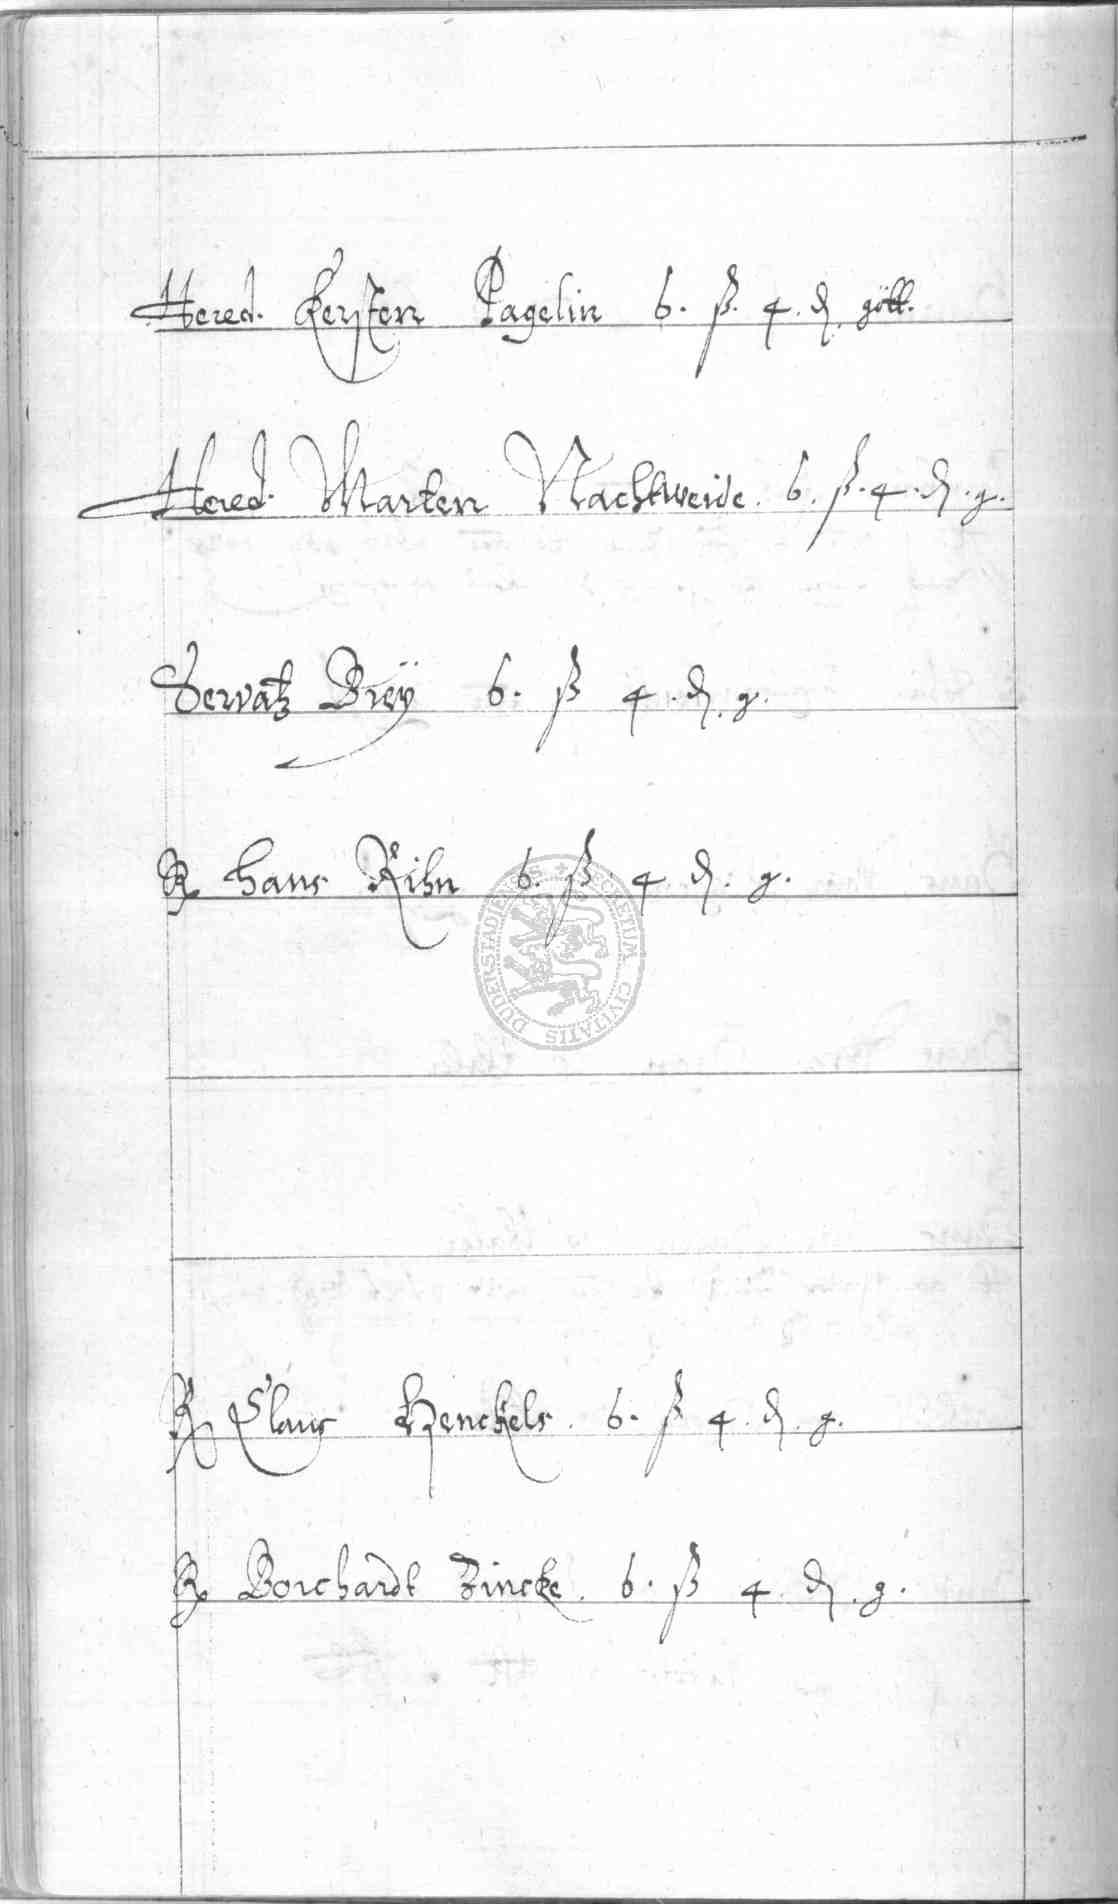 Hered. Kersten Pagelin 6. ß. 4. ₰. gött.
Hered. Marten Nachtweide. 6. ß. 4. ₰. g.
Servatz Breÿ 6. ß 4. ₰. g.
R hans Kihn 6. ß. 4 ₰. g.
SECRETUM CIVITATIS DUDERSTADIENSIS
R Claus Henckels. 6. ß 4. ₰. g.
R Borchardt Zincke. 6. ß 4. ₰. g.